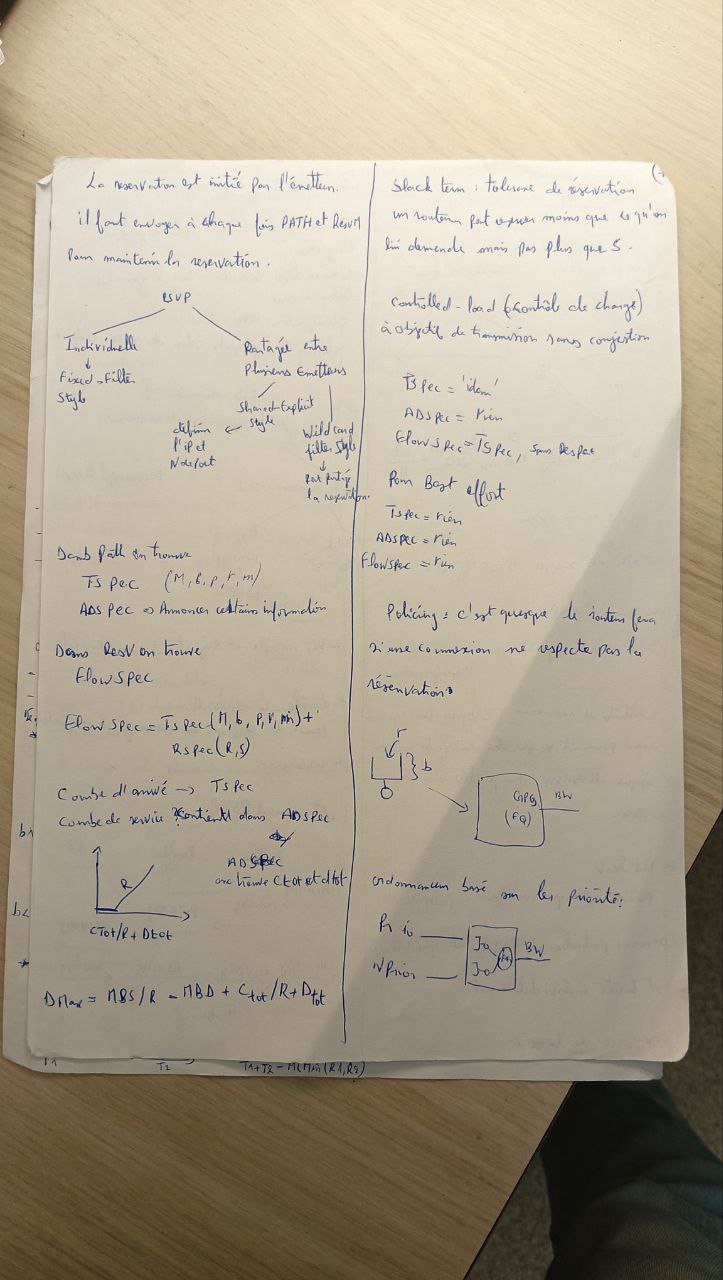 La reservation est initié par l'émetteur.
il faut envoyer à chaque fois PATH et Resv
Pour maintenir la reservation.
RSVP
Individuelle
Fixed-Filter
Style
Partagée entre
Plusieurs Emetteurs
Shared-Explicit
Style
définir
l'ip et
N° de port
Wildcard
filter style
la reservation.
Dans Path on trouve
TSpec (M, b, p, r, m)
ADSpec => Annoncer certains information
Dans ResV on trouve
FlowSpec
FlowSpec = Tspec(M, b, p, r, m) +
Rspec(R,S)
Courbe d'arrivé → TSpec
Courbe de service contient dans ADSpec
ADSpec
on trouve Ctot et dtot
R
CTot/R + Dtot
DMax = MBS/R - MBD + Ctot/R + Dtot
T2
T1+T2-M(Min(R1,R2)
Slack term : tolerance de réservation
un routeur peut réserver moins que ce qu'on
lui demande mais pas plus que S.
Controlled-load (Contrôle de charge)
à objectif de transmission sans congestion
TSpec = 'idem'
ADSpec = rien
FlowSpec = TSpec, sans Respec
Pour Best effort
Tspec = rien
ADSpec = rien
FlowSpec = rien
Policing : c'est quesque le routeur fera
si une connexion ne respecte pas la
réservation
r
b
(FQ)
BW
ordonnanceur basé sur les priorité:
Prio
NPrior
BW